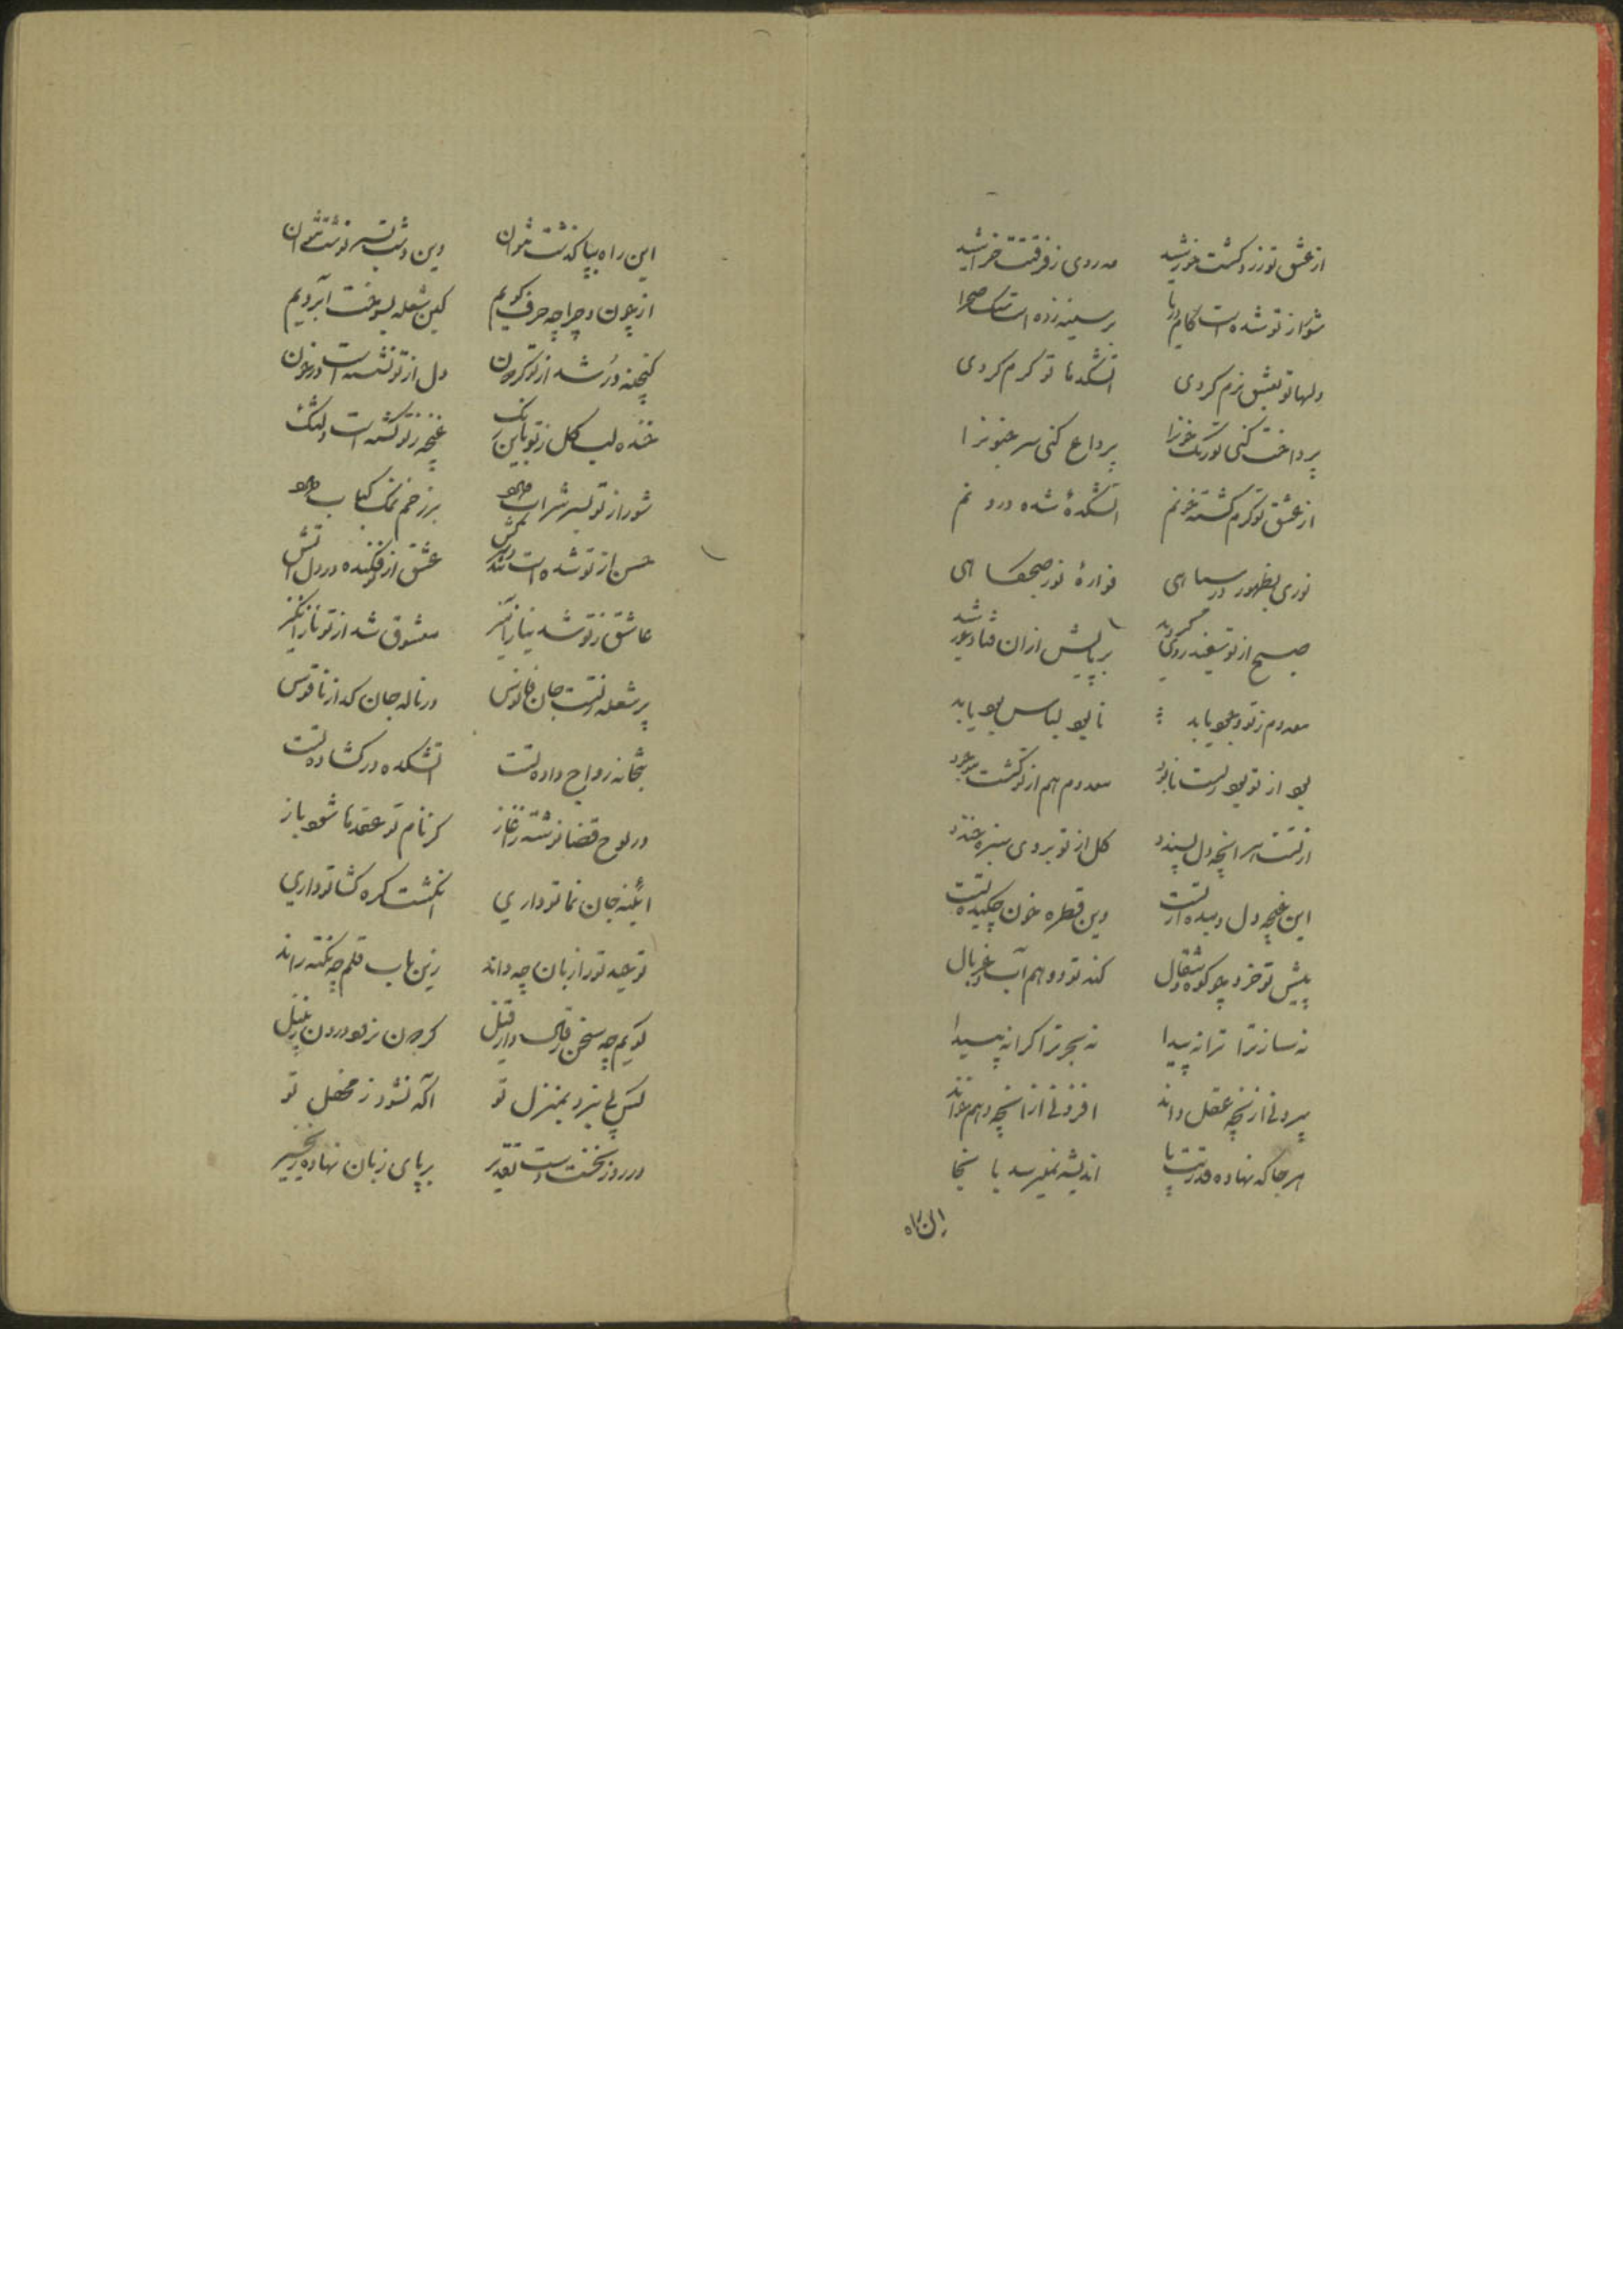 از عشق تو زرد گشت خورشید مه روی ز فرقتت خراشید
شور از تو شده است کام دریا بر سینه زده است سنگ صحرا
دلها تو بعشق نرم کردی آتشکدها تو گرم کردی
پرداخت کنی تو رنگ خونرا پر داغ کنی سر جنونرا
از عشق تو گرم گشته خونم آتشکدهٔ شده درونم
نوری بظهور در سیاهی فوارهٔ نور صبحگاهی
صبح از تو سفید روی گردید بر پایش از آن فتاد خورشید
معدوم ز تو وجود یابد نابود لباس بود یابد
بود از تو بود است نابود معدوم هم از تو گشت موجود
از تست هر آنچه دل پسندد گل از تو بروی سبزه خندد
این غنچه دل دمیده از تست وین قطره خون چکیده تست
پیش تو خرد چو کوه و مثقال کنه تو و وهم آب و غربال
نه ساز ترا ترانه پیدا نه بحر ترا کرانه پیدا
بیرونی از آنچه عقل داند افزونی از آنچه وهم خواند
هر جا که نهاده قدرتت پا اندیشه نمیرسد بآنجا
این راه
این راه بپا گذشت نتوان وین دشت بسر نوشت نتوان
از چون و چرا چه حرف گویم کین شعله بسوخت آبرویم
گنجینه در شد از تو گر جون دل از تو نشسته است در خون
خنده لب گل ز تو باین رنگ غنچه ز تو گشته است دلتنگ
شور از تو بسر شراب دارد بر زخم نمک کباب دارد
حسن از تو شده است تند و سرکش عشق از تو فکنده در دل آتش
عاشق ز تو شد نیاز آمیز معشوق شد از تو ناز انگیز
پر شعله ز تست جان فانوس در ناله جان گداز ناقوس
بتخانه رواج داده تست آتشکده در گشاده تست
در لوح قضا نوشته ز آغاز کز نام تو عقدها شود باز
آئینه جان نما تو داری انگشت گره گشا تو داری
توحید تو را زبان چه داند زین باب قلم چه نکته راند
گویم چه سخن ز قال و از قیل
کس پی نبرد بمنزل تو آگه نشود ز محفل تو
در روز نخست دست تقدیر بر پای زبان نهاده زنجیر